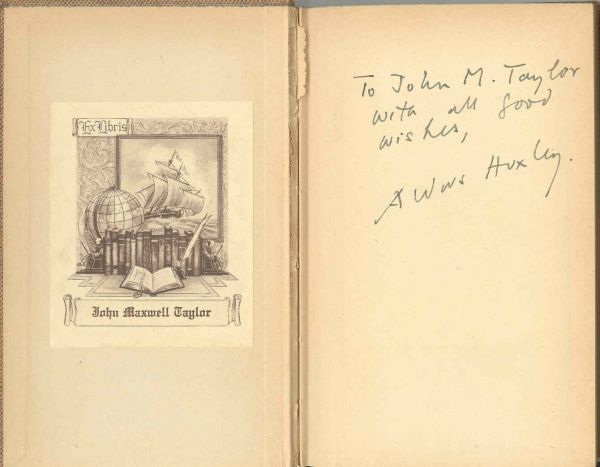 Ex Libris
John Maxwell Taylor
To John M. Taylor
with all good
wishes,
Aldous Huxley.